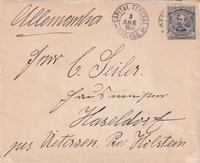 Allemanha
CAPITAL FEDERAL
3
ABR
Herr C. Seiler.
Hausmeister
Haseldorf
per Uetersen. Bez. Holstein